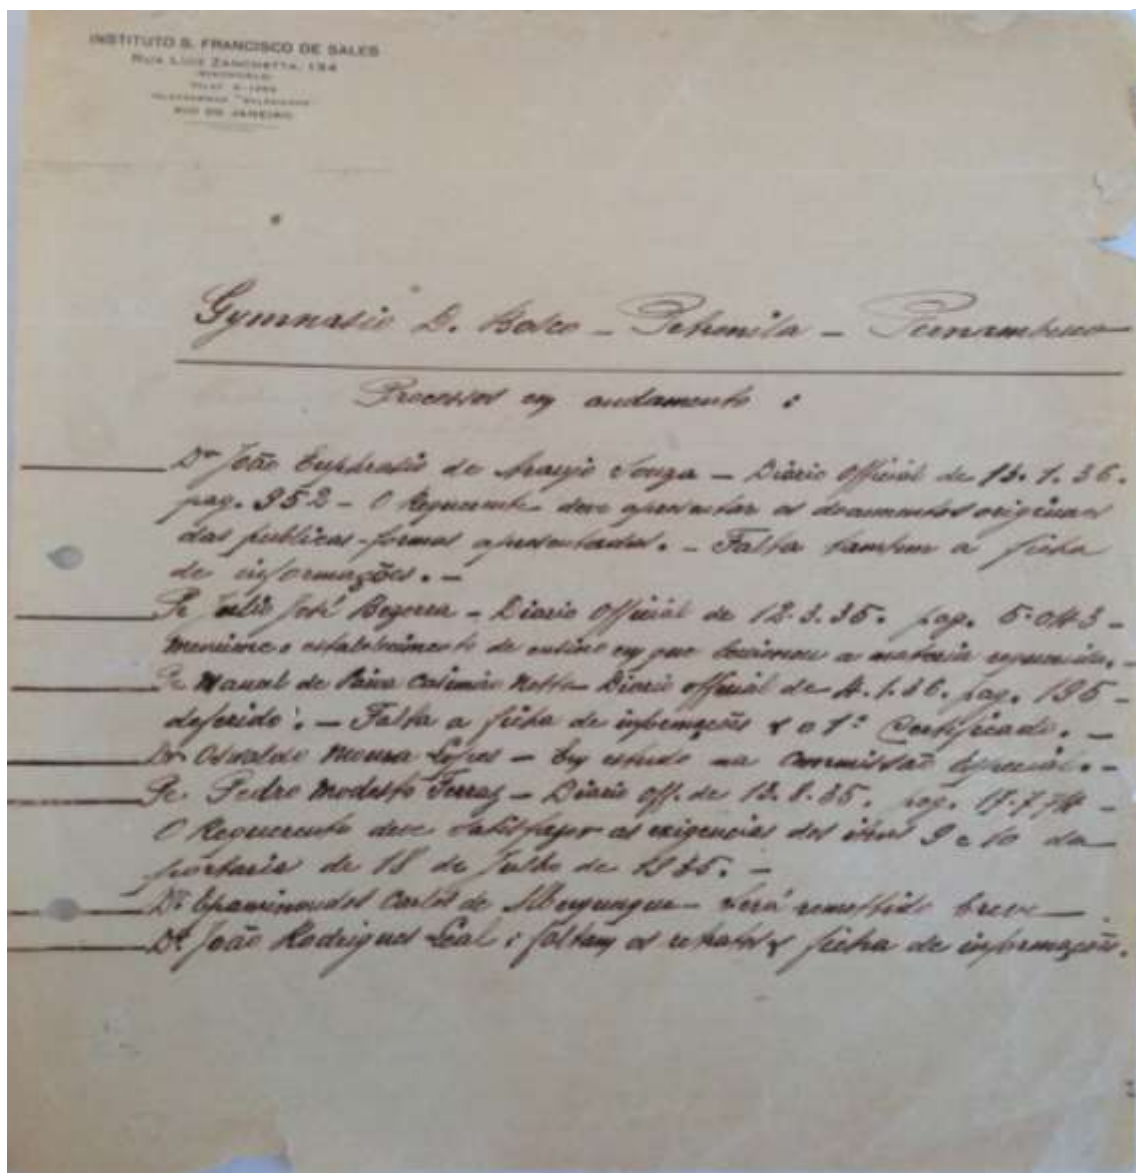 INSTITUTO S. FRANCISCO DE SALES
RUA LUIZ ZANCHETTA, 134
RIO DE JANEIRO
Gymnasio D. Bosco – Petronila – Pernambuco
Processos em andamento :
Dr João Euphrasio de Araujo Souza – Diario Official de 13. 1. 36.
pag. 952 – O Requerente deve apresentar os documentos originaes
das publicas-formas apresentadas. – Falta tambem a ficha
de informações. –
Pe Julio José Bezerra – Diario Official de 12. 3. 35. pag. 5.043 –
Mencione o estabelecimento de ensino em que leccionou a materia requerida. –
Pe Manoel de Paiva Netto – Diario official de 4. 1. 36. pag. 195 –
deferido : – Falta a ficha de informações e o 1º Certificado. –
Dr Oswaldo Moura Lopes – Em estudo na Commissão Especial. –
Pe. Pedro Modesto Ferraz – Diario Off. de 12. 8. 35. pag. 17.774 –
O Requerente deve satisfazer as exigencias dos itens 9 e 10 da
portaria de 18 de Julho de 1935. –
Dr Epaminondas Carlos de Albuquerque – Será remettido breve –.
Dr João Rodrigues Leal : faltam os retratos e ficha de informações.